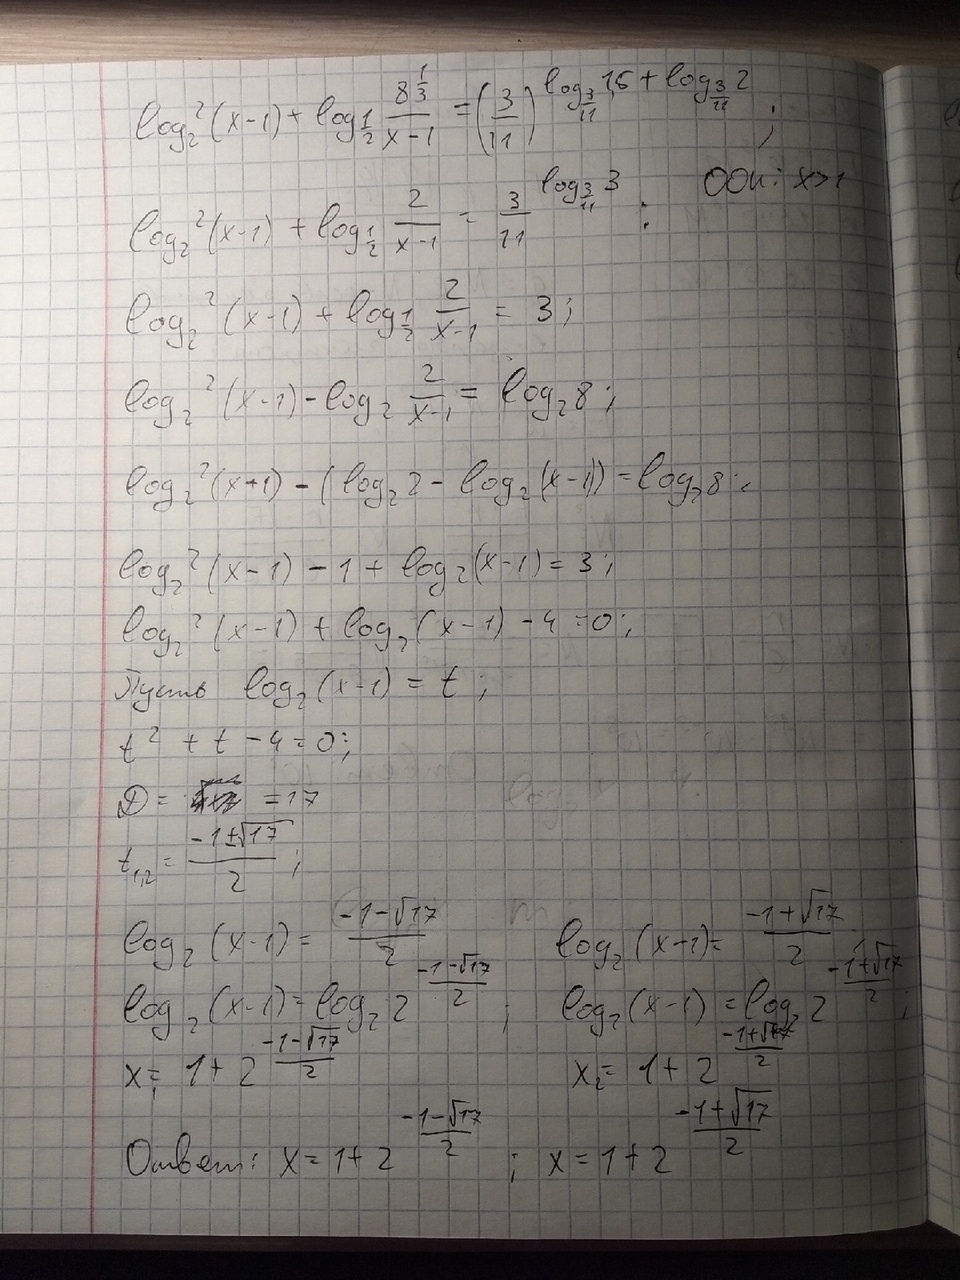 log₂²(x-1) + log_{1/2} 8^{1/3}/(x-1) = (3/11)^{log_{3/11} 1,5 + log_{3/11} 2} ;
log₂²(x-1) + log_{1/2} 2/(x-1) = 3/11^{log_{3/11} 3} ; ООИ: x>1
log₂²(x-1) + log_{1/2} 2/(x-1) = 3;
log₂²(x-1) - log₂ 2/(x-1) = log₂8;
log₂²(x+1) - (log₂2 - log₂(x-1)) = log₂8;
log₂²(x-1) - 1 + log₂(x-1) = 3;
log₂²(x-1) + log₂(x-1) - 4 = 0;
Пусть log₂(x-1) = t;
t² + t - 4 = 0;
D = = 17
t_{1,2} = (-1±√17)/2 ;
log₂(x-1) = (-1-√17)/2 log₂(x-1) = (-1+√17)/2
log₂(x-1) = log₂2^{(-1-√17)/2} ; log₂(x-1) = log₂2^{(-1+√17)/2} ;
x₁ = 1+2^{(-1-√17)/2} x₂ = 1+2^{(-1+√17)/2}
Ответ: x = 1+2^{(-1-√17)/2} ; x = 1+2^{(-1+√17)/2}